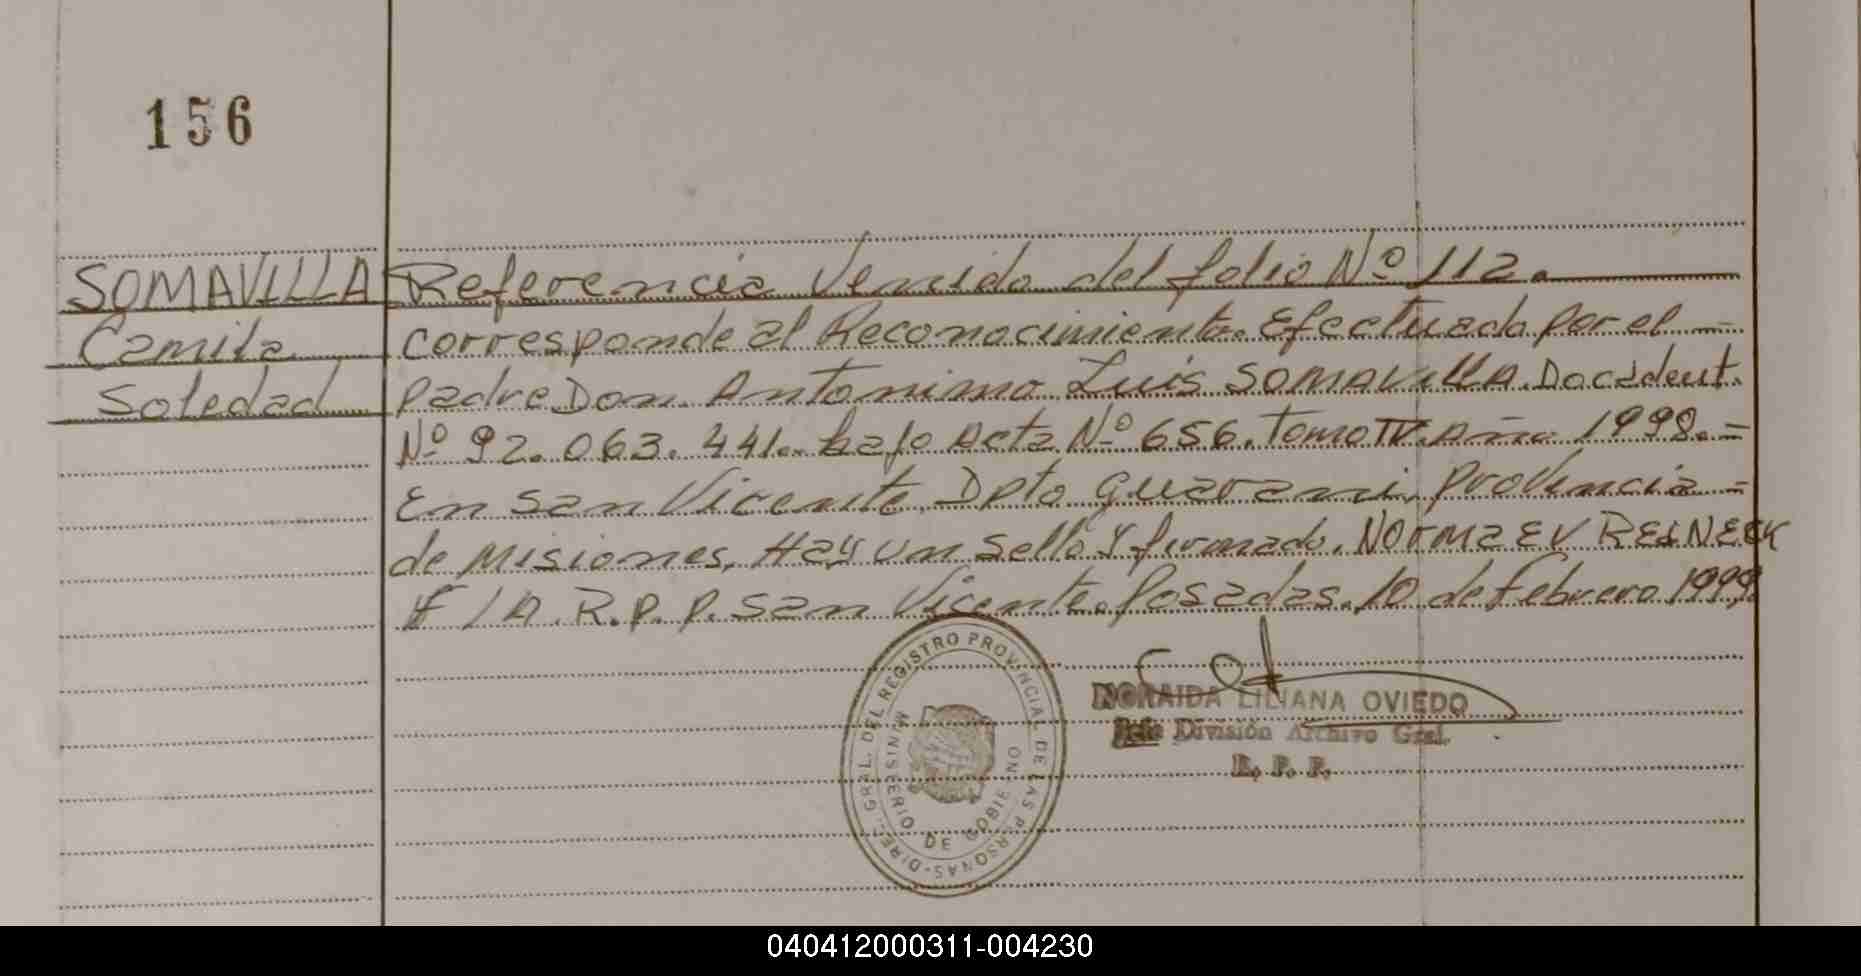 156
SOMAVILLA
Camila
Soledad
Referencia Venido del folio Nº 112.
corresponde al Reconocimiento. Efectuado por el -
padre Don. Antonimo Luis SOMAVILLA. Doc. Ident.
Nº 92.063.441. bajo Acta Nº 656. Tomo IV. Año 1998.=
En San Vicente, Dpto Guarani, Provincia =
de Misiones, Hay un sello y firmado. NORMA E V REINECK
F/A. R.P.P. San Vicente. Posadas. 10 de febrero 1999.
DIREC. GRAL. DEL REGISTRO PROVINCIAL DE LAS PERSONAS
MINISTERIO DE GOBIERNO
NORAIDA LILIANA OVIEDO
Jefe División Archivo Gral.
R. P. P.
040412000311-004230